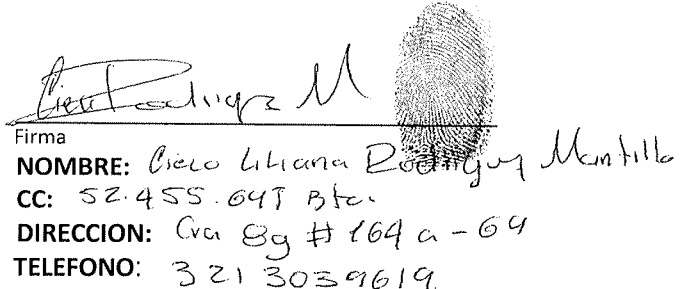 Cielo Rodrigz M
Firma
NOMBRE: Cielo Liliana Rodriguez Mantilla
CC: 52.455.645 Bta.
DIRECCION: Cra 8g # 164 a - 64
TELEFONO: 321 3039619